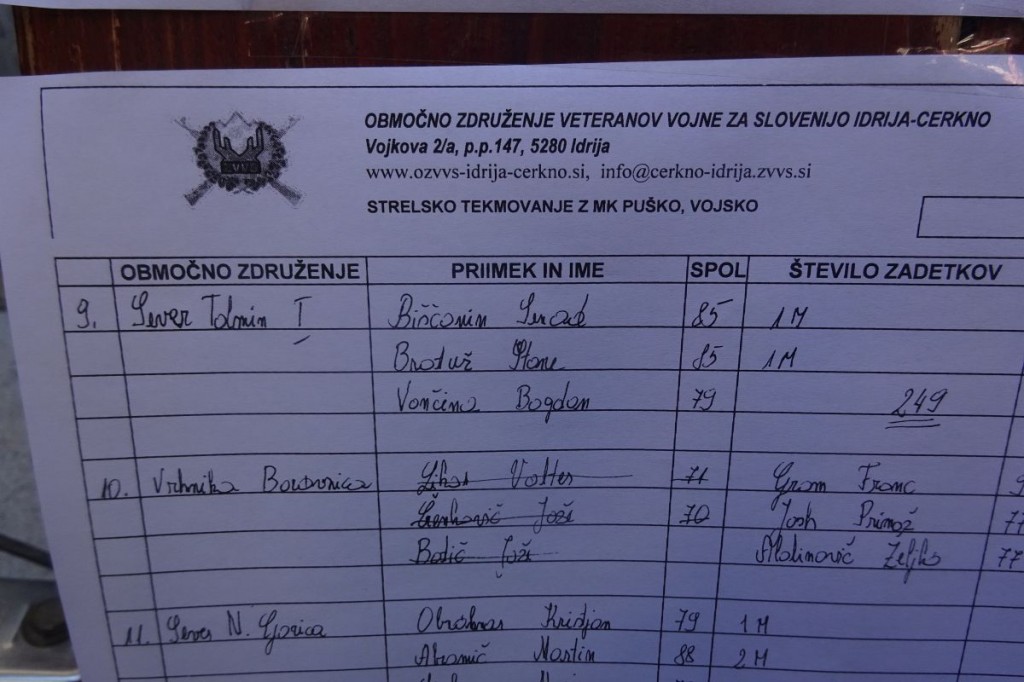 ZVVS
OBMOČNO ZDRUŽENJE VETERANOV VOJNE ZA SLOVENIJO IDRIJA-CERKNO
Vojkova 2/a, p.p.147, 5280 Idrija
www.ozvvs-idrija-cerkno.si, info@cerkno-idrija.zvvs.si
STRELSKO TEKMOVANJE Z MK PUŠKO, VOJSKO
OBMOČNO ZDRUŽENJE PRIIMEK IN IME SPOL ŠTEVILO ZADETKOV
9. Sever Tolmin I Biščanin Senad 85 1M
Bratuž Stane 85 1M
Vončina Bogdan 79 249
10. Vrhnika Borovnica Likar Valter 71 Gram Franc
Joži 70 Josh Primož 77
Batič Joži Malinović Željko 77
11. Sever N. Gorica Kristjan 79 1M
Abramič Martin 88 2M